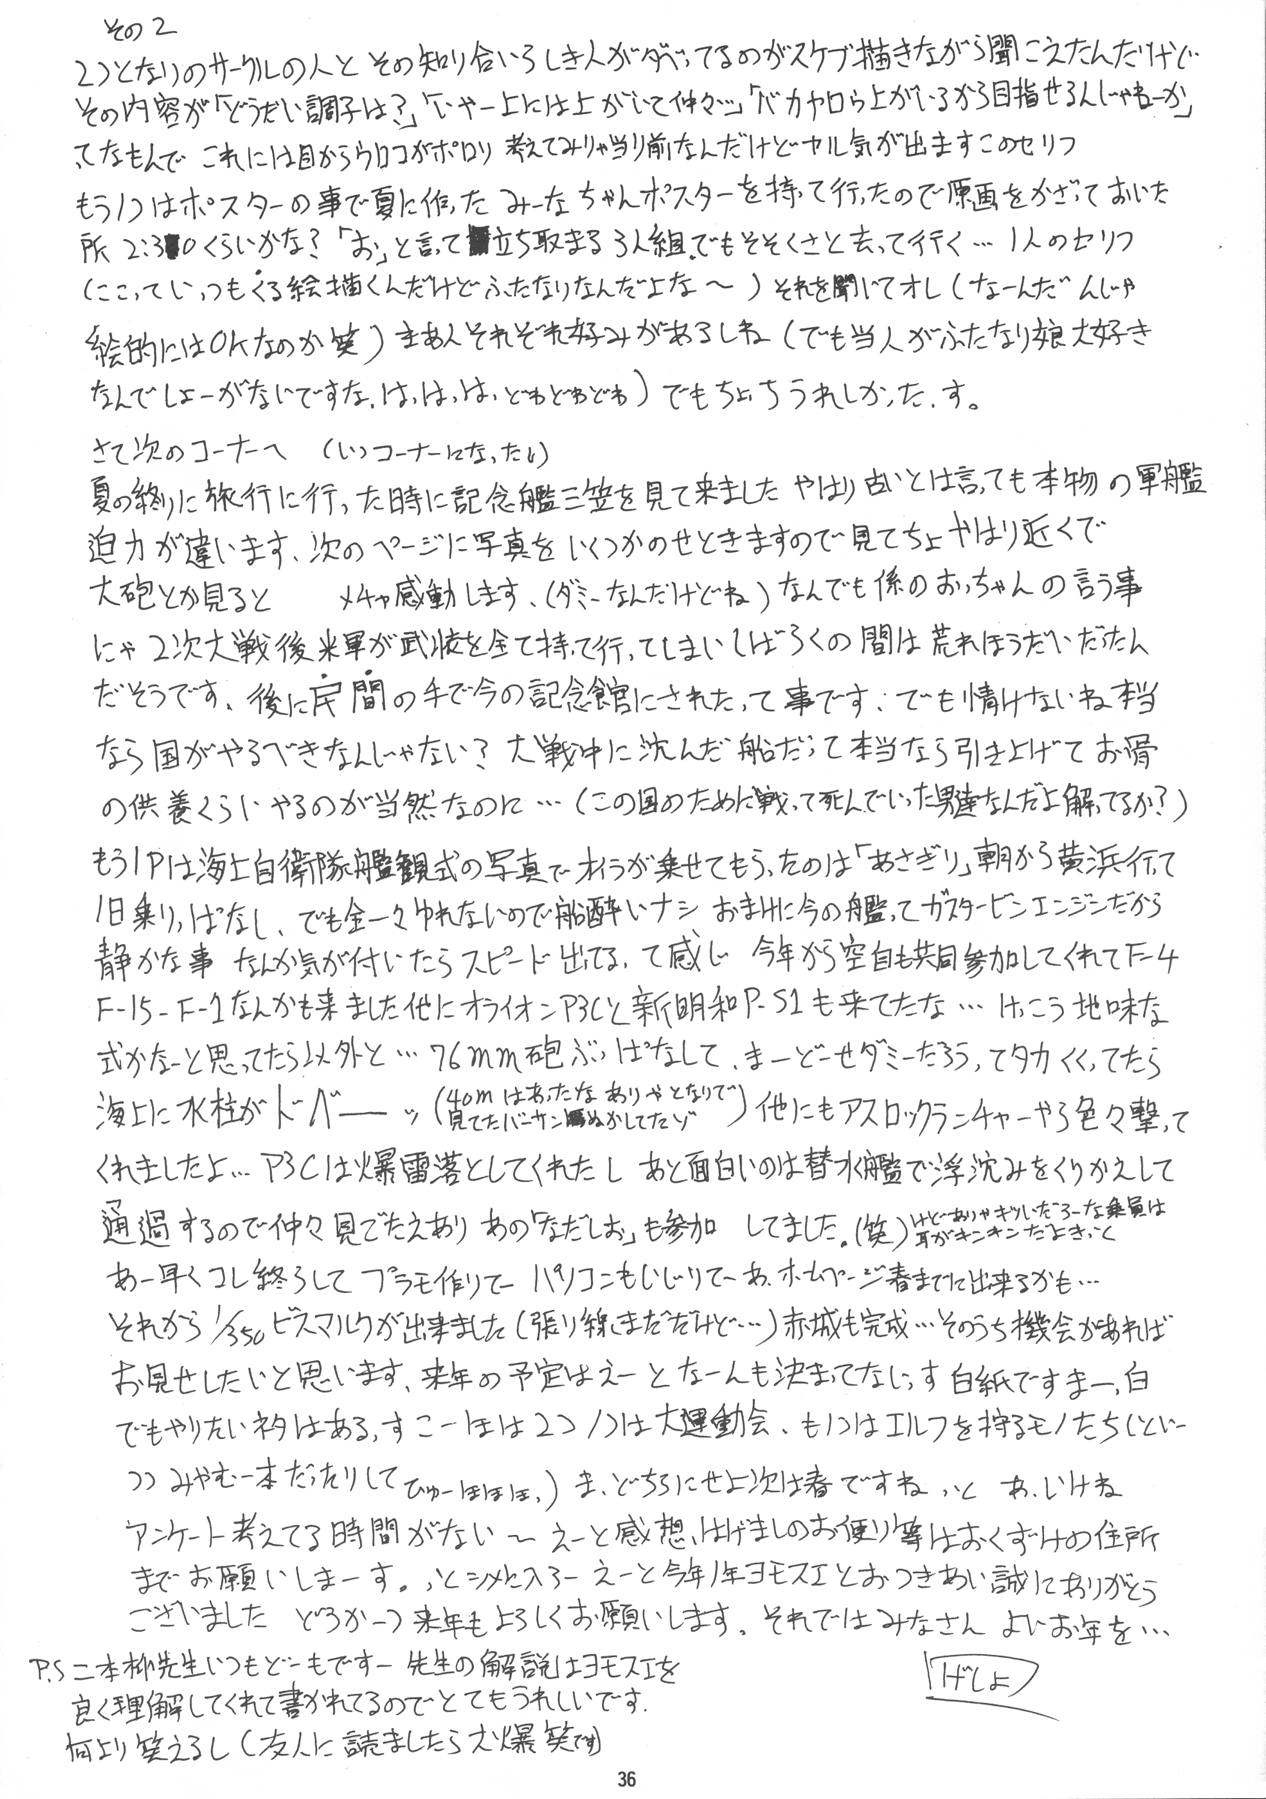 その2
2つとなりのサークルの人と その知り合いらしき人がダベってるのがスケブ描きながら聞こえたんだけど
その内容が「どうだい調子は?」「いやー上には上がいて仲々ッ」「バカヤロウ上がいるから目指せるんじゃねーか」
ってなもんで これには目からウロコがポロリ 考えてみりゃ当り前なんだけどヤル気が出ますこのセリフ
もう1つはポスターの事で夏に作ったみーなちゃんポスターを持って行ったので原画をかざっておいた
所 2:30くらいかな?「お」と言って立ち取まる3人組、でもそそくさと去って行く…1人のセリフ
(ここっていつもくる絵描くんだけどふたなりなんだよな〜)それを聞いてオレ(なーんだんじゃ
絵的にはOKなのか笑)まあんそれぞれ好みがあるしね(でも当人がふたなり娘大好き
なんでしょーがないですな、はっはっはっどわどわどわ)でもちょっちうれしかったっす。
さて次のコーナーへ (いつコーナーになったい)
夏の終りに旅行に行った時に記念艦三笠を見て来ました やはり古いとは言っても本物の軍艦
迫力が違います、次のページに写真をいくつかのせときますので見てちょ やはり近くで
大砲とか見ると メチャ感動します、(ダミーなんだけどね)なんでも係のおっちゃんの言う事
にゃ2次大戦後米軍が武装を全て持って行ってしまいしばらくの間は荒れほうだいだったん
だそうです、後に民間の手で今の記念館にされたって事です、でも情けないね本当
なら国がやるべきなんじゃない?大戦中に沈んだ船だって本当なら引き上げてお骨
の供養くらいやるのが当然なのに…(この国のために戦って死んでいった男達なんだよ解ってるか?)
もう1Pは海上自衛隊艦観式の写真でオイラが乗せてもらったのは「あさぎり」朝から横浜行って
1日乗りっぱなし、でも全々ゆれないので船酔いナシ おまけに今の艦ってガスタービンエンジンだから
静かな事 なんか気が付いたらスピード出てるって感じ 今年から空自も共同参加してくれてF-4
F-15-F-1なんかも来ました他にオライオンP3Cと新明和P-S1も来てたな…けっこう地味な
式かなーと思ってたら以外と…76mm砲ぶっぱなして、まーどーせダミーだろうってタカくくってたら
海上に水柱がドバーーッ(40mはあったなありゃとなりで
見てたバーサンぬかしてたゾ)他にもアスロックランチャーやら色々撃って
くれましたよ…P3Cは爆雷落としてくれたし あと面白いのは潜水艦で浮沈みをくりかえして
通過するので仲々見ごたえあり あの「なだしお」も参加 してました。(笑)けどありゃキツイだろーな乗員は
耳がキンキンだよきっと
あー早くコレ終らしてプラモ作りてー パソコンもいじりてーあ、ホームページ春までに出来るかも…
それから1/350ビスマルクが出来ました(張り線まだだけど…)赤城も完成…そのうち機会があれば
お見せしたいと思います、来年の予定はえーとなーんも決まってないっす白紙ですまーっ白
でもやりたいネタはある、すこーしは2つ 1つは大運動会、も1つはエルフを狩るモノたち(といー
つつみやむー本だったりして ひゅーほほほっ)ま、どちらにせよ次は春ですねっと あ、いけね
アンケート考えてる時間がない〜えーと感想、はげましのお便り等はおくずけの住所
までお願いしまーす。っとシメに入ろー えーと今年1年ヨモスエとおつきあい誠にありがとう
ございました どうかーつ来年もよろしくお願いします。それではみなさん よいお年を…
げしょ
P.S 二本柳先生いつもどーもですー 先生の解説はヨモスエを
良く理解してくれて書かれてるのでとてもうれしいです。
何より笑えるし(友人に読ましたら大爆笑です)
36